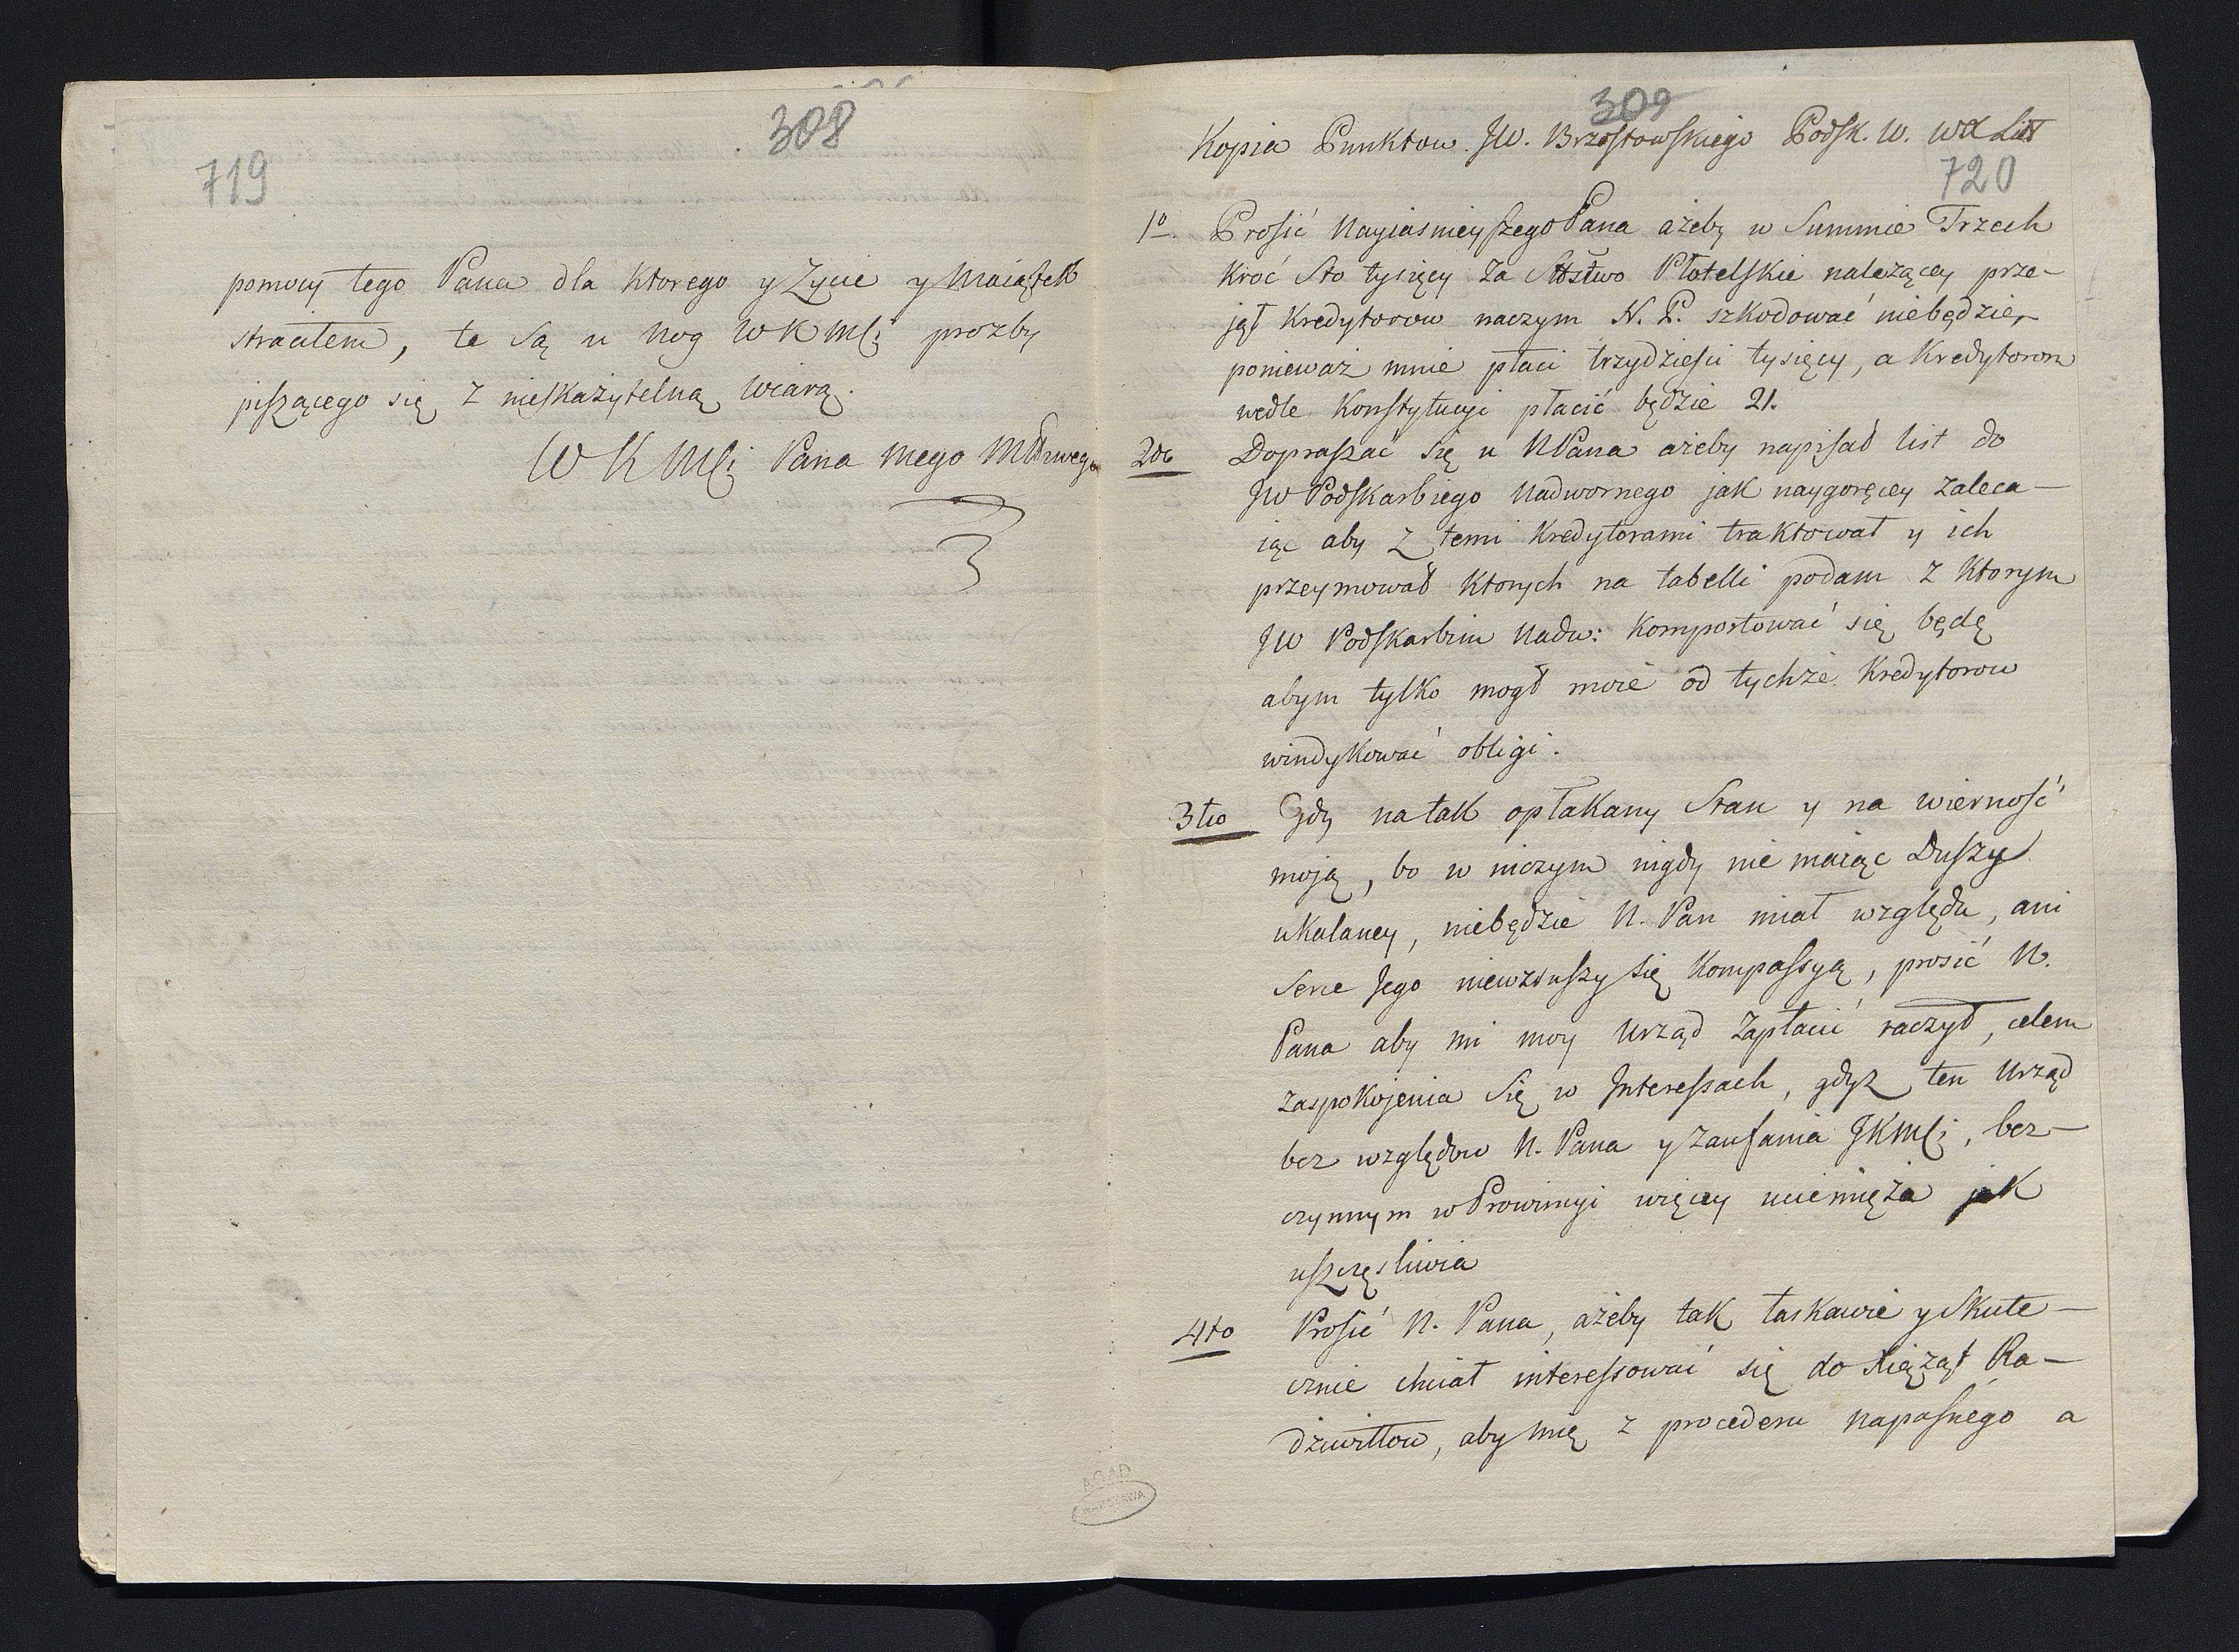 308
719
pomocy tego Pana dla ktorego y Zycie y Maiątek
straciłem, te są u Nog WKMCi prozby
piszącego się z nieskazytelną wiarą.
WKMCi Pana mego Młłwego
309
Kopia Punktow JW. Brzostowskiego Podsk. W. WXLitt
720
1º Prosić Nayiasnieyszego Pana ażeby w Summie Trzech
kroć Sto tysięcy za Ststwo Płotelskie należącey prze-
jął Kredytorow naczym N. P. szkodować niebędzie,
ponieważ mnie płaci trzydzieści tysięcy, a Kredytorom
wedle Konstytucyi płacić będzie 21.
2do Dopraszać się u NPana ażeby napisał list do
JW Podskarbiego Nadwornego jak naygoręcey zaleca-
iąc aby z temi Kredytorami traktował y ich
przeymował ktorych na tabelli podam z ktorym
JW Podskarbim Nadw: komportować się będę
abym tylko mogł moie od tychże Kredytorow
windykować obligi.
3tio Gdy na tak opłakany Stan y na wierność
moją, bo w niczym nigdy nie maiąc Duszy
ukalaney, niebędzie N. Pan miał względu, ani
Serce Jego niewzruszy się kompassyą, prosić N.
Pana aby mi moy Urząd zapłacić raczył, celem
zaspokojenia się w Interessach, gdyż ten Urząd
bez względow N. Pana y zaufania JKMCi, bez-
czynnym w Prowincyi więcey uciemięża jak
uszczęsliwia
4to Prosić N. Pana, ażeby tak łaskawie y skute-
cznie chciał interessować się do Xiążąt Ra-
dziwiłłow, aby mię z procederu napasnego a
AGAD
WARSZAWA